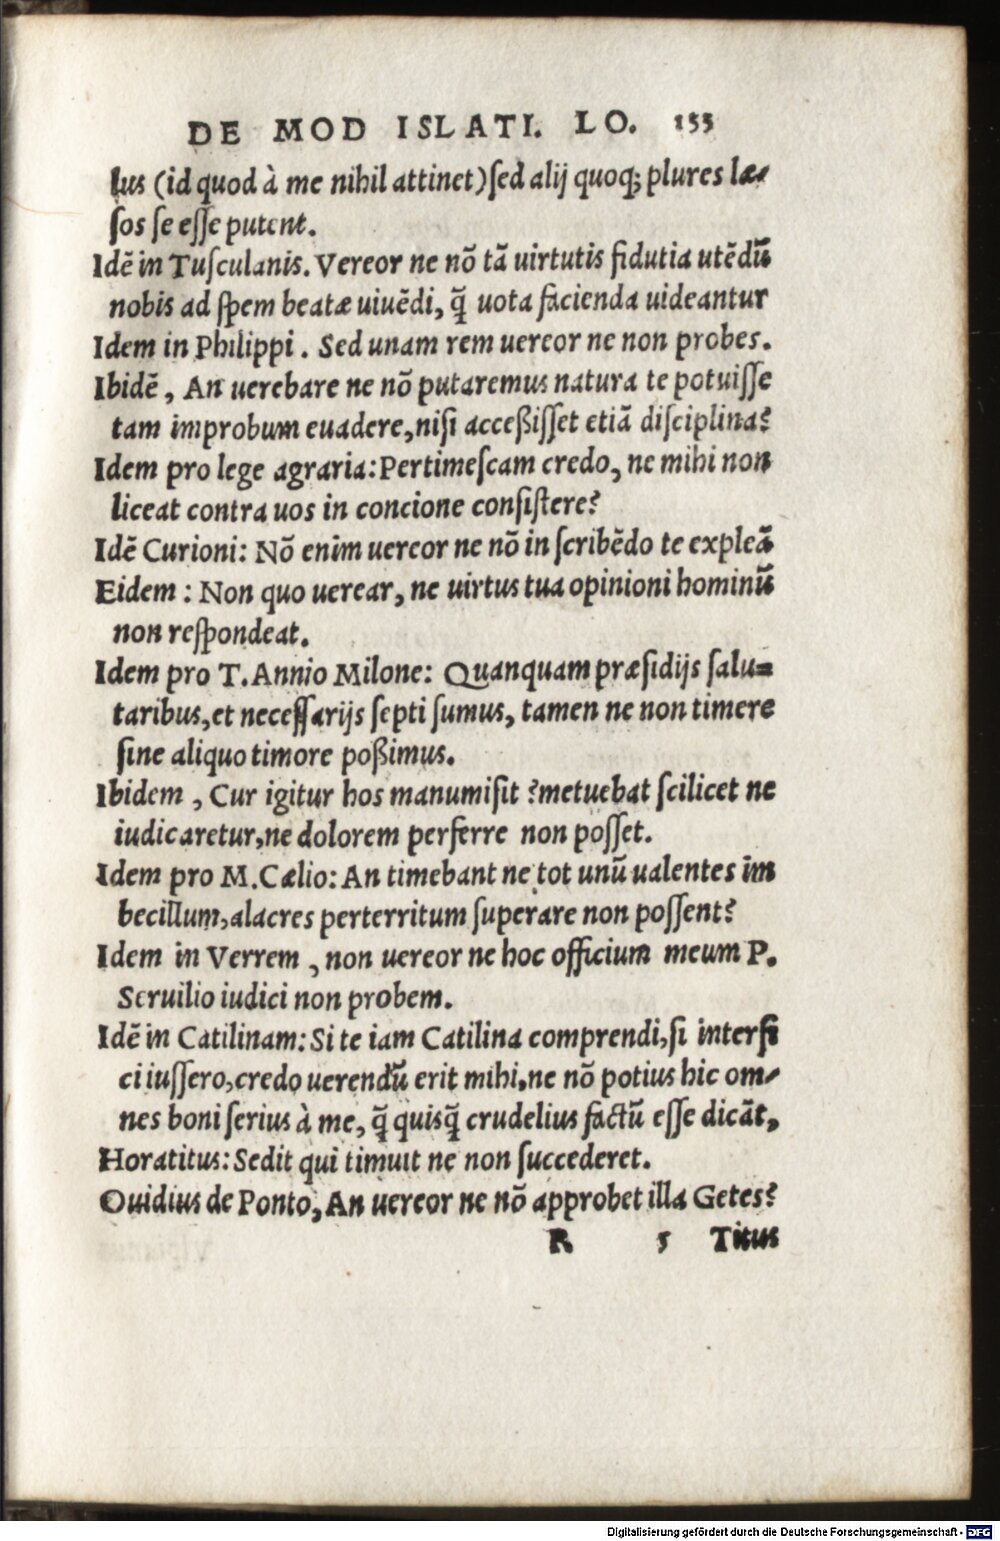 DE MOD ISLATI. LO. 155
lus (id quod à me nihil attinet) sed alij quoq; plures læ-
sos se esse putent.
Idē in Tusculanis. Vereor ne nō tā uirtutis fidutia utēdū
nobis ad spem beatæ uiuēdi, q̄ uota facienda uideantur
Idem in Philippi. Sed unam rem uereor ne non probes.
Ibidē, An uerebare ne nō putaremus natura te potuisse
tam improbum euadere, nisi acceßisset etiā disciplina?
Idem pro lege agraria: Pertimescam credo, ne mihi non
liceat contra uos in concione consistere?
Idē Curioni: Nō enim uereor ne nō in scribēdo te expleā
Eidem: Non quo uerear, ne uirtus tua opinioni hominū
non respondeat.
Idem pro T. Annio Milone: Quanquam præsidijs salu-
taribus, et necessarijs septi sumus, tamen ne non timere
sine aliquo timore poßimus.
Ibidem, Cur igitur hos manumisit? metuebat scilicet ne
iudicaretur, ne dolorem perferre non posset.
Idem pro M. Cælio: An timebant ne tot unū ualentes im
becillum, alacres perterritum superare non possent?
Idem in Verrem, non uereor ne hoc officium meum P.
Seruilio iudici non probem.
Idē in Catilinam: Si te iam Catilina comprendi, si interfi
ci iussero, credo uerendū erit mihi, ne nō potius hic om-
nes boni serius à me, q̄ quisq̄ crudelius factū esse dicāt,
Horatitus: Sedit qui timuit ne non succederet.
Ouidius de Ponto, An uereor ne nō approbet illa Getes?
R 5 Titus
Digitalisierung gefördert durch die Deutsche Forschungsgemeinschaft - DFG